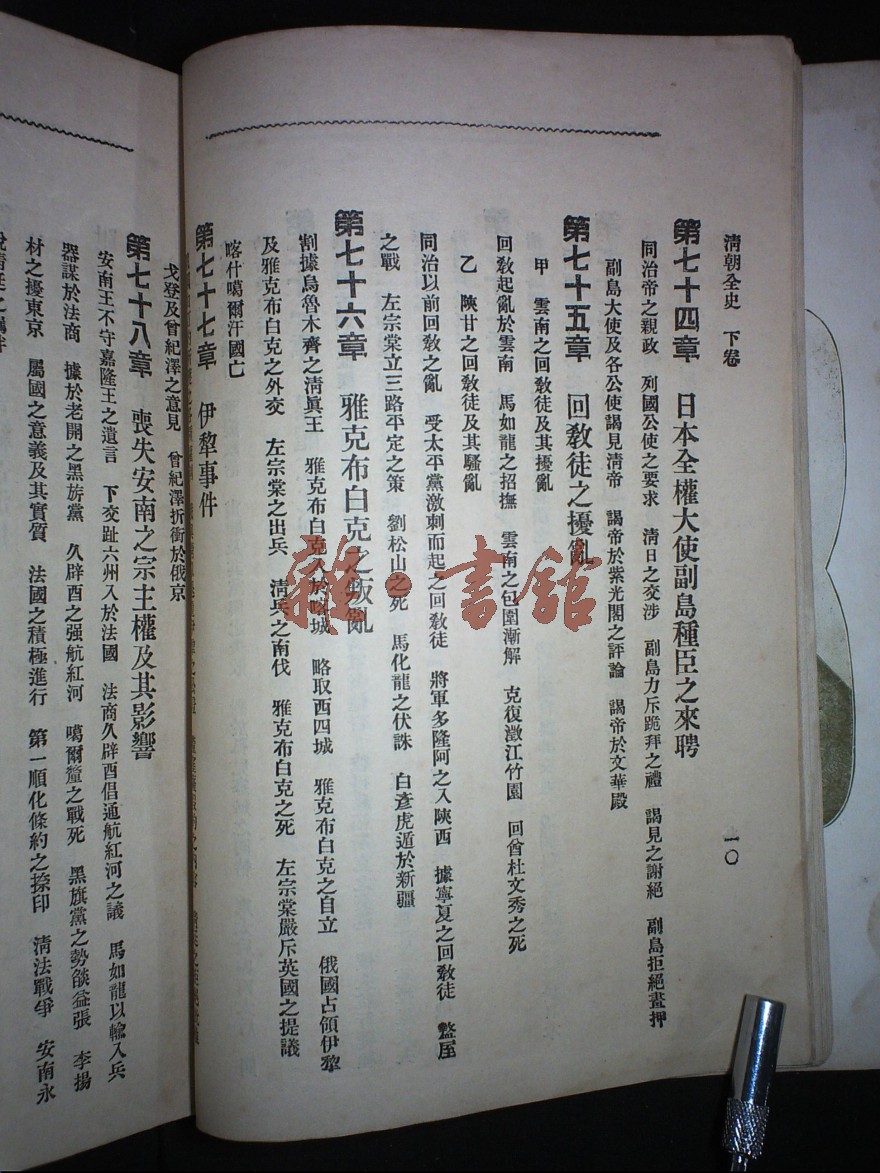 清朝全史　下卷
一〇
第七十四章　日本全權大使副島種臣之來聘
同治帝之親政　列國公使之要求　清日之交涉　副島力斥跪拜之禮　謁見之謝絕　副島拒絕畫押
副島大使及各公使謁見清帝　謁帝於紫光閣之評論　謁帝於文華殿
第七十五章　回敎徒之擾亂
甲　雲南之回敎徒及其擾亂
回敎起亂於雲南　馬如龍之招撫　雲南之包圍漸解　克復澂江竹園　回酋杜文秀之死
乙　陝甘之回敎徒及其騷亂
同治以前回敎之亂　受太平黨激刺而起之回敎徒　將軍多隆阿之入陝西　據寧夏之回敎徒　盩厔
之戰　左宗棠立三路平定之策　劉松山之死　馬化龍之伏誅　白彥虎遁於新疆
第七十六章　雅克布白克之叛亂
割據烏魯木齊之淸眞王　雅克布白克入於喀城　略取西四城　雅克布白克之自立　俄國占領伊犂
及雅克布白克之外交　左宗棠之出兵　淸兵之南伐　雅克布白克之死　左宗棠嚴斥英國之提議
喀什噶爾汗國亡
第七十七章　伊犂事件
戈登及曾紀澤之意見　曾紀澤折衝於俄京
第七十八章　喪失安南之宗主權及其影響
安南王不守嘉隆王之遺言　下交趾六州入於法國　法商久辟酉倡通航紅河之議　馬如龍以輸入兵
器謀於法商　據於老開之黑旂黨　久辟酉之强航紅河　噶爾釐之戰死　黑旗黨之勢燄益張　李揚
材之擾東京　屬國之意義及其實質　法國之積極進行　第一順化條約之捺印　淸法戰爭　安南永
雜·書館